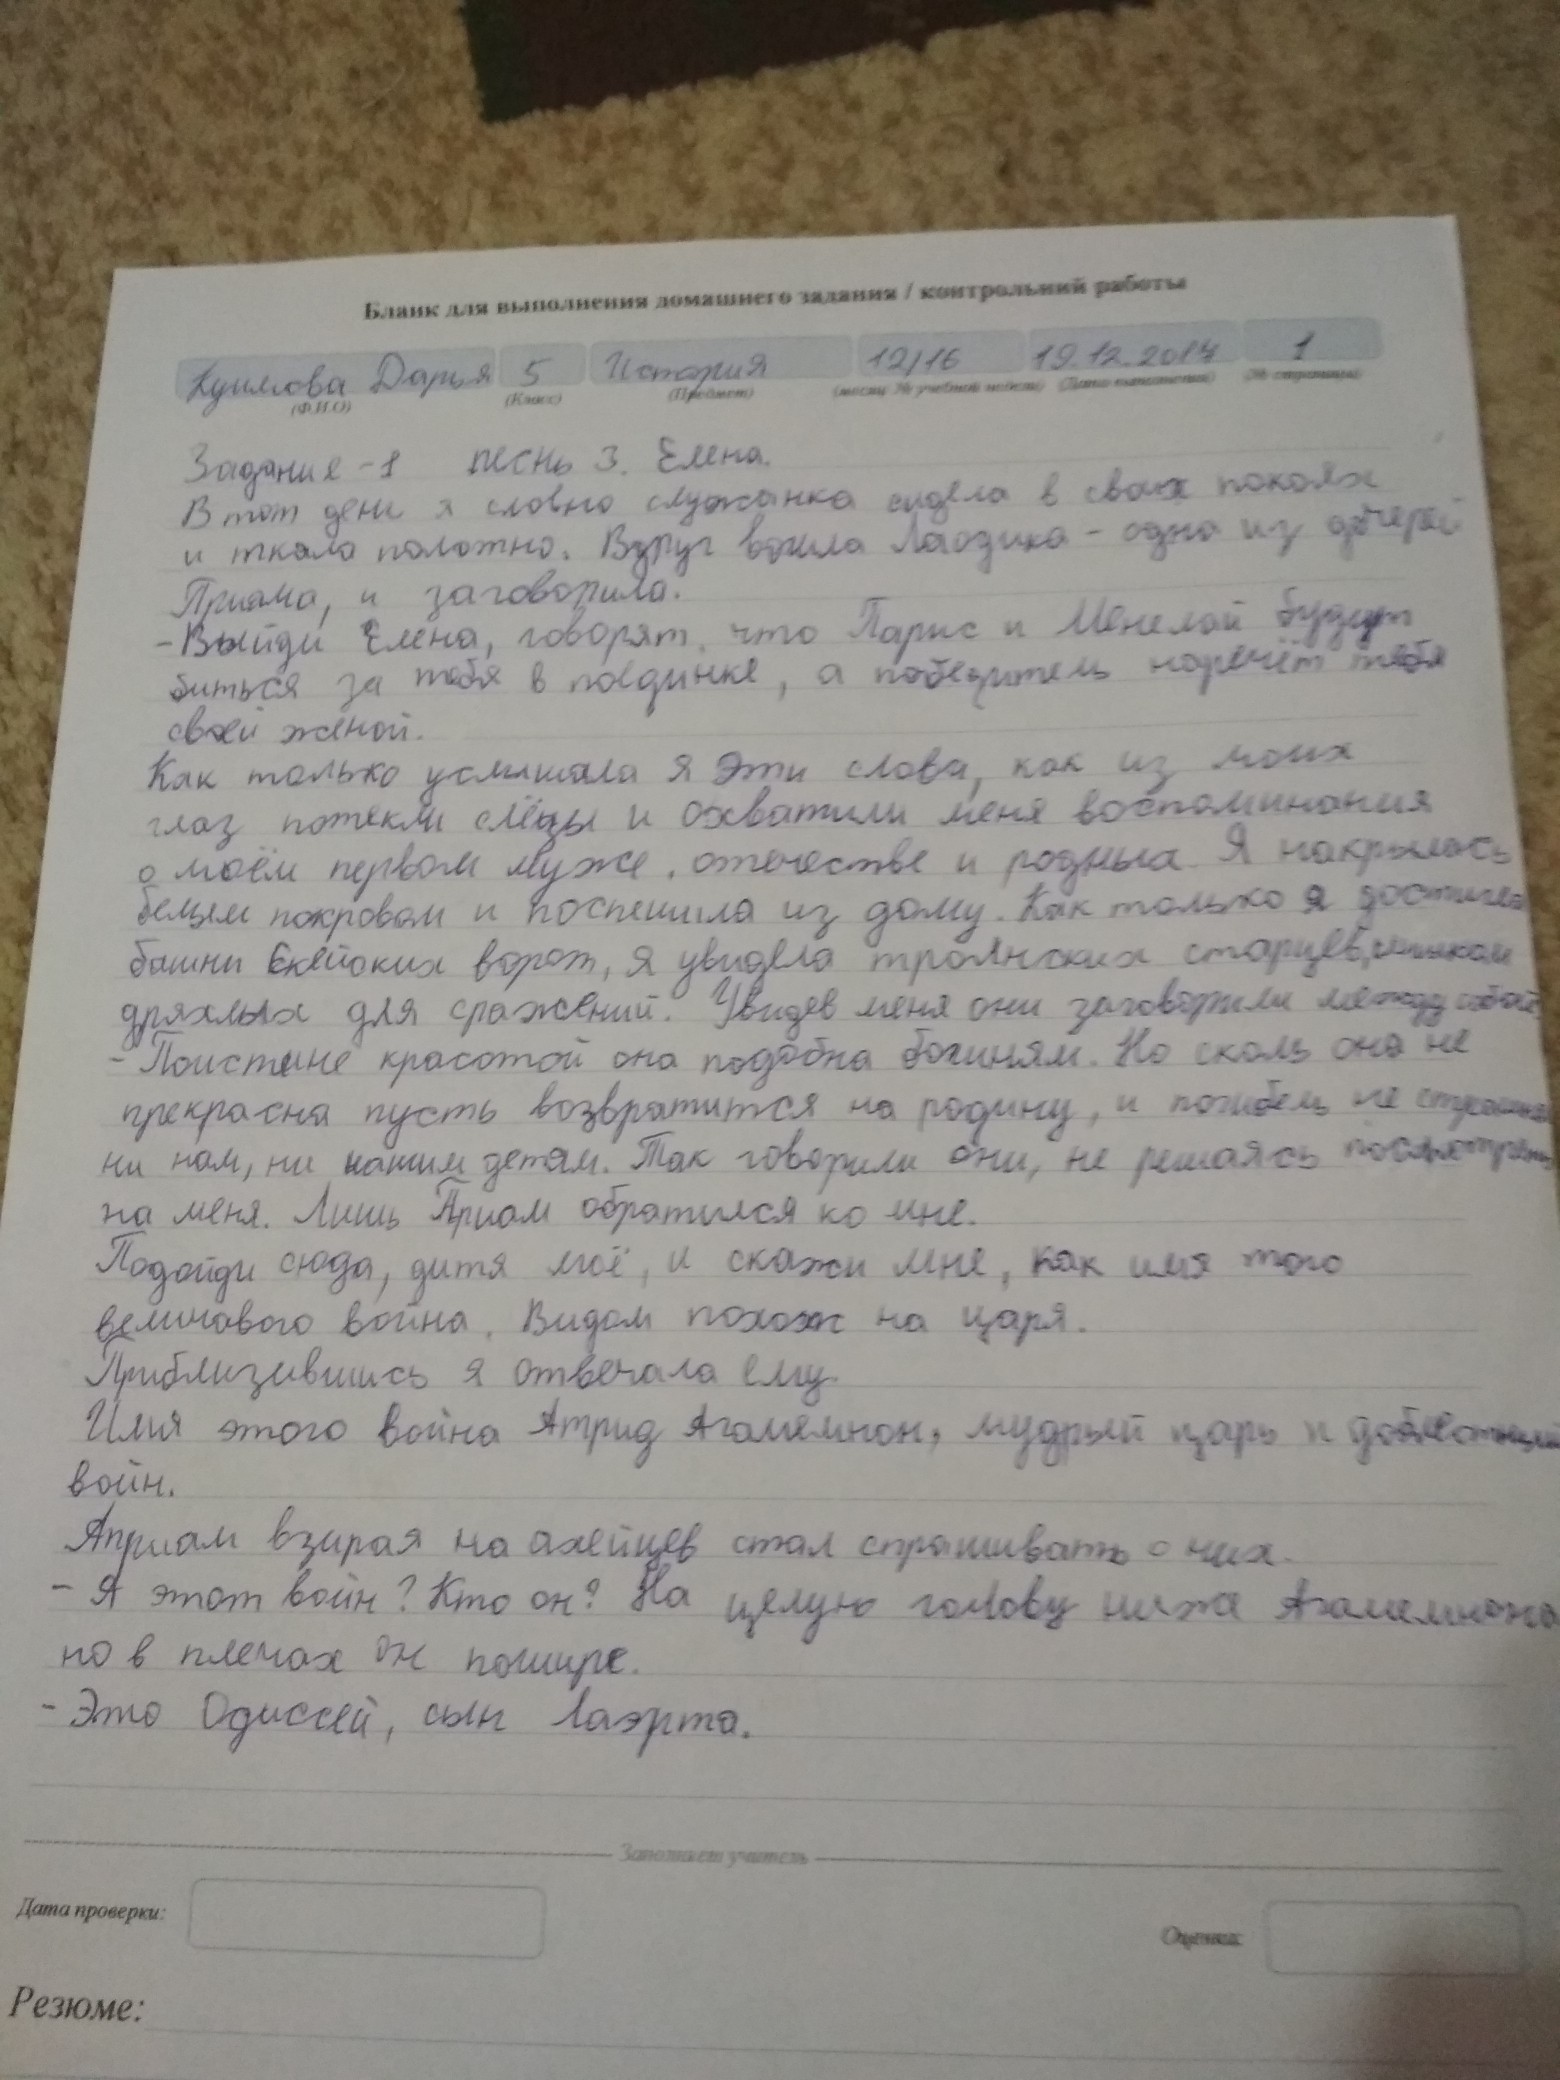 Бланк для выполнения домашнего задания / контрольний работы
Дарья 5 История 12/16 19.12.2017 1
(Ф.И.О) (Класс) (Предмет) (месяц/№ учебной недели) (Дата выполнения) (№ страницы)
Задание-1 песнь 3. Елена.
В тот день я словно служанка сидела в своих покоях
и ткала полотно. Вдруг вошла Лаодика - одна из дочерей
Приама, и заговорила.
-Выйди Елена, говорят, что Парис и Менелай будут
биться за тебя в поединке, а победитель наречёт тебя
своей женой.
Как только услышала я эти слова, как из моих
глаз потекли слёзы и охватили меня воспоминания
о моём первом муже, отечестве и родных. Я накрылась
белым покровом и поспешила из дому. Как только я достигла
башни Скейских ворот, я увидела троянских старцев, слишком
дряхлых для сражений. Увидев меня они заговорили между собой.
-Поистине красотой она подобна богиням. Но сколь она не
прекрасна пусть возвратится на родину, и погибель не страшна
ни нам, ни нашим детям. Так говорили они, не решаясь посмотреть
на меня. Лишь Приам обратился ко мне.
Подойди сюда, дитя моё, и скажи мне, как имя того
величавого война. Видом похож на царя.
Приблизившись я отвечала ему.
Имя этого война Атрид Агамемнон, мудрый царь и доблестный
войн.
Априам взирая на ахейцев стал спрашивать о них.
- А этот войн? Кто он? На целую голову ниже Агамемнона
но в плечах он пошире.
- Это Одиссей, сын Лаэрта.
Заполняет учитель
Дата проверки:
Оценка:
Резюме: